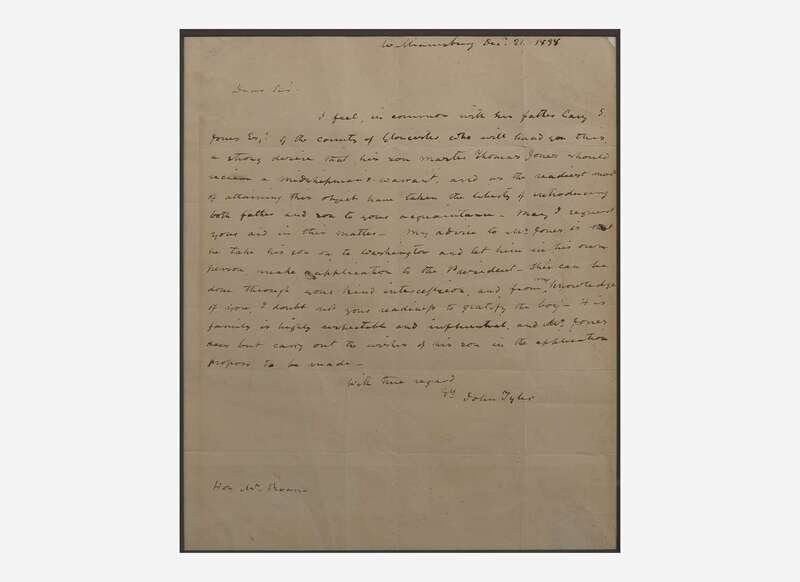 Williamsburg Decr. 21, 1838
Dear Sir.
I feel, in common with his father Cary S.
Jones Esqr. of the county of Gloucester who will hand you this,
a strong desire that his son master Thomas Jones should
receive a midshipman's warrant, and as the readiest mode
of attaining this object have taken the liberty of introducing
both father and son to your acquaintance - May I request
your aid in this matter - My advice to Mr. Jones is that
he take his son on to Washington and let him in his own
person, make application to the President - This can be
done through your kind intercession, and from my knowledge
of you, I doubt not your readiness to gratify the boy - His
family is highly respectable and influential, and Mr. Jones
does but carry out the wishes of his son in the application
proposed to be made -
With true regard
Yr
John Tyler
Hon Mr.